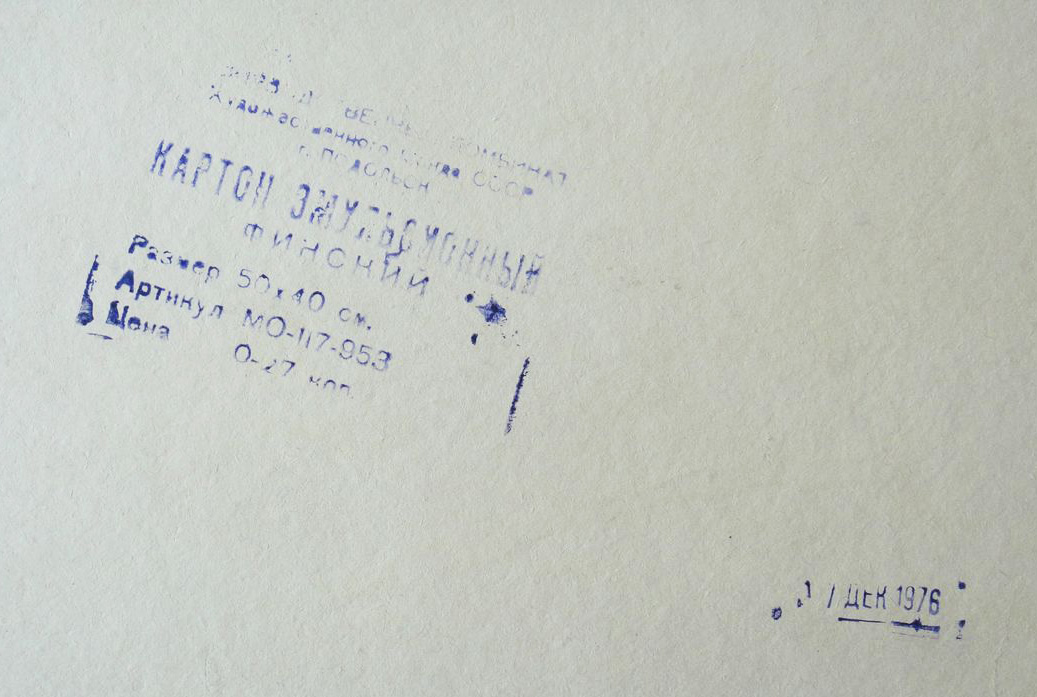 КОМБИНАТ
Художественного фонда СССР
г. ПОДОЛЬСК
КАРТОН ЭМУЛЬСИОННЫЙ
ФИНСКИЙ
Размер 50х40 см.
Артикул МО-117-953
Цена 0-27 коп.
ДЕК 1976